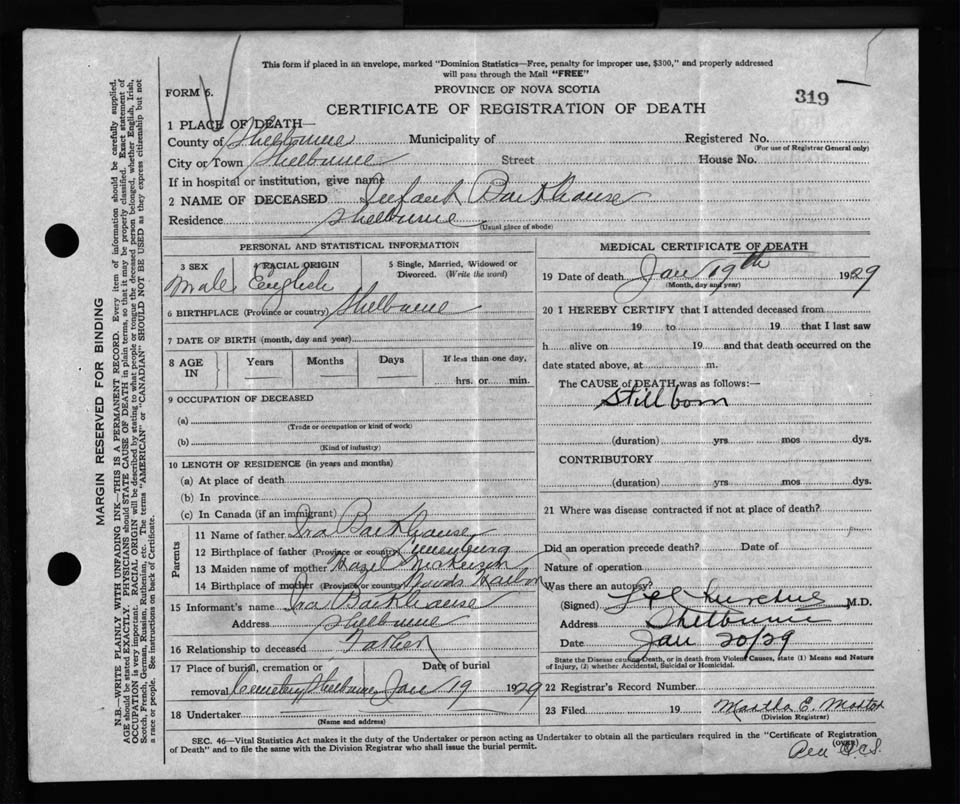 This form if placed in an envelope, marked "Dominion Statistics—Free, penalty for improper use, $300," and properly addressed
will pass through the Mail "FREE"
FORM 6.
PROVINCE OF NOVA SCOTIA
319
CERTIFICATE OF REGISTRATION OF DEATH
1 PLACE OF DEATH—
County of Shelburne Municipality of Registered No.
(For use of Registrar General only)
City or Town Shelburne Street House No.
If in hospital or institution, give name
2 NAME OF DECEASED Infant Barkhouse
Residence Shelburne
(Usual place of abode)
PERSONAL AND STATISTICAL INFORMATION
3 SEX 4 RACIAL ORIGIN 5 Single, Married, Widowed or
Divorced. (Write the word)
Male English
6 BIRTHPLACE (Province or country) Shelburne
7 DATE OF BIRTH (month, day and year)
8 AGE IN Years Months Days If less than one day,
hrs. or min.
9 OCCUPATION OF DECEASED
(a)
(Trade or occupation or kind of work)
(b)
(Kind of industry)
10 LENGTH OF RESIDENCE (in years and months)
(a) At place of death
(b) In province
(c) In Canada (if an immigrant)
Parents
11 Name of father Ira Barkhouse
12 Birthplace of father (Province or country) Lunenburg
13 Maiden name of mother Hazel Nickerson
14 Birthplace of mother (Province or country) Woods Harbor
15 Informant's name Ira Barkhouse
Address Shelburne
16 Relationship to deceased Father
17 Place of burial, cremation or Date of burial
removal Cemetery Shelburne Jan 19 1929
18 Undertaker
(Name and address)
MEDICAL CERTIFICATE OF DEATH
19 Date of death Jan 19th 1929
(Month, day and year)
20 I HEREBY CERTIFY that I attended deceased from
19 to 19 that I last saw
h alive on 19 and that death occurred on the
date stated above, at m.
The CAUSE of DEATH was as follows:—
Stillborn
(duration) yrs mos dys.
CONTRIBUTORY
(duration) yrs mos dys.
21 Where was disease contracted if not at place of death?
Did an operation precede death? Date of
Nature of operation
Was there an autopsy?
(Signed) M.D.
Address Shelburne
Date Jan 20/29
State the Disease causing Death, or in death from Violent Causes, state (1) Means and Nature
of Injury, (2) whether Accidental, Suicidal or Homicidal.
22 Registrar's Record Number
23 Filed 19 Martha E.
(Division Registrar)
SEC. 46—Vital Statistics Act makes it the duty of the Undertaker or person acting as Undertaker to obtain all the particulars required in the "Certificate of Registration
of Death" and to file the same with the Division Registrar who shall issue the burial permit.
(OVER)
MARGIN RESERVED FOR BINDING
N.B.—WRITE PLAINLY WITH UNFADING INK—THIS IS A PERMANENT RECORD. Every item of information should be carefully supplied.
AGE should be stated EXACTLY. PHYSICIANS should STATE CAUSE OF DEATH in plain terms, so that it may be properly classified. Exact statement of
OCCUPATION is very important. RACIAL ORIGIN will be described by stating to what people or tongue the deceased person belonged, whether English, Irish,
Scotch, French, German, Russian, Ruthenian, etc. The terms "AMERICAN" or "CANADIAN" SHOULD NOT BE USED as they express citizenship but not
a race or people. See instructions on back of Certificate.